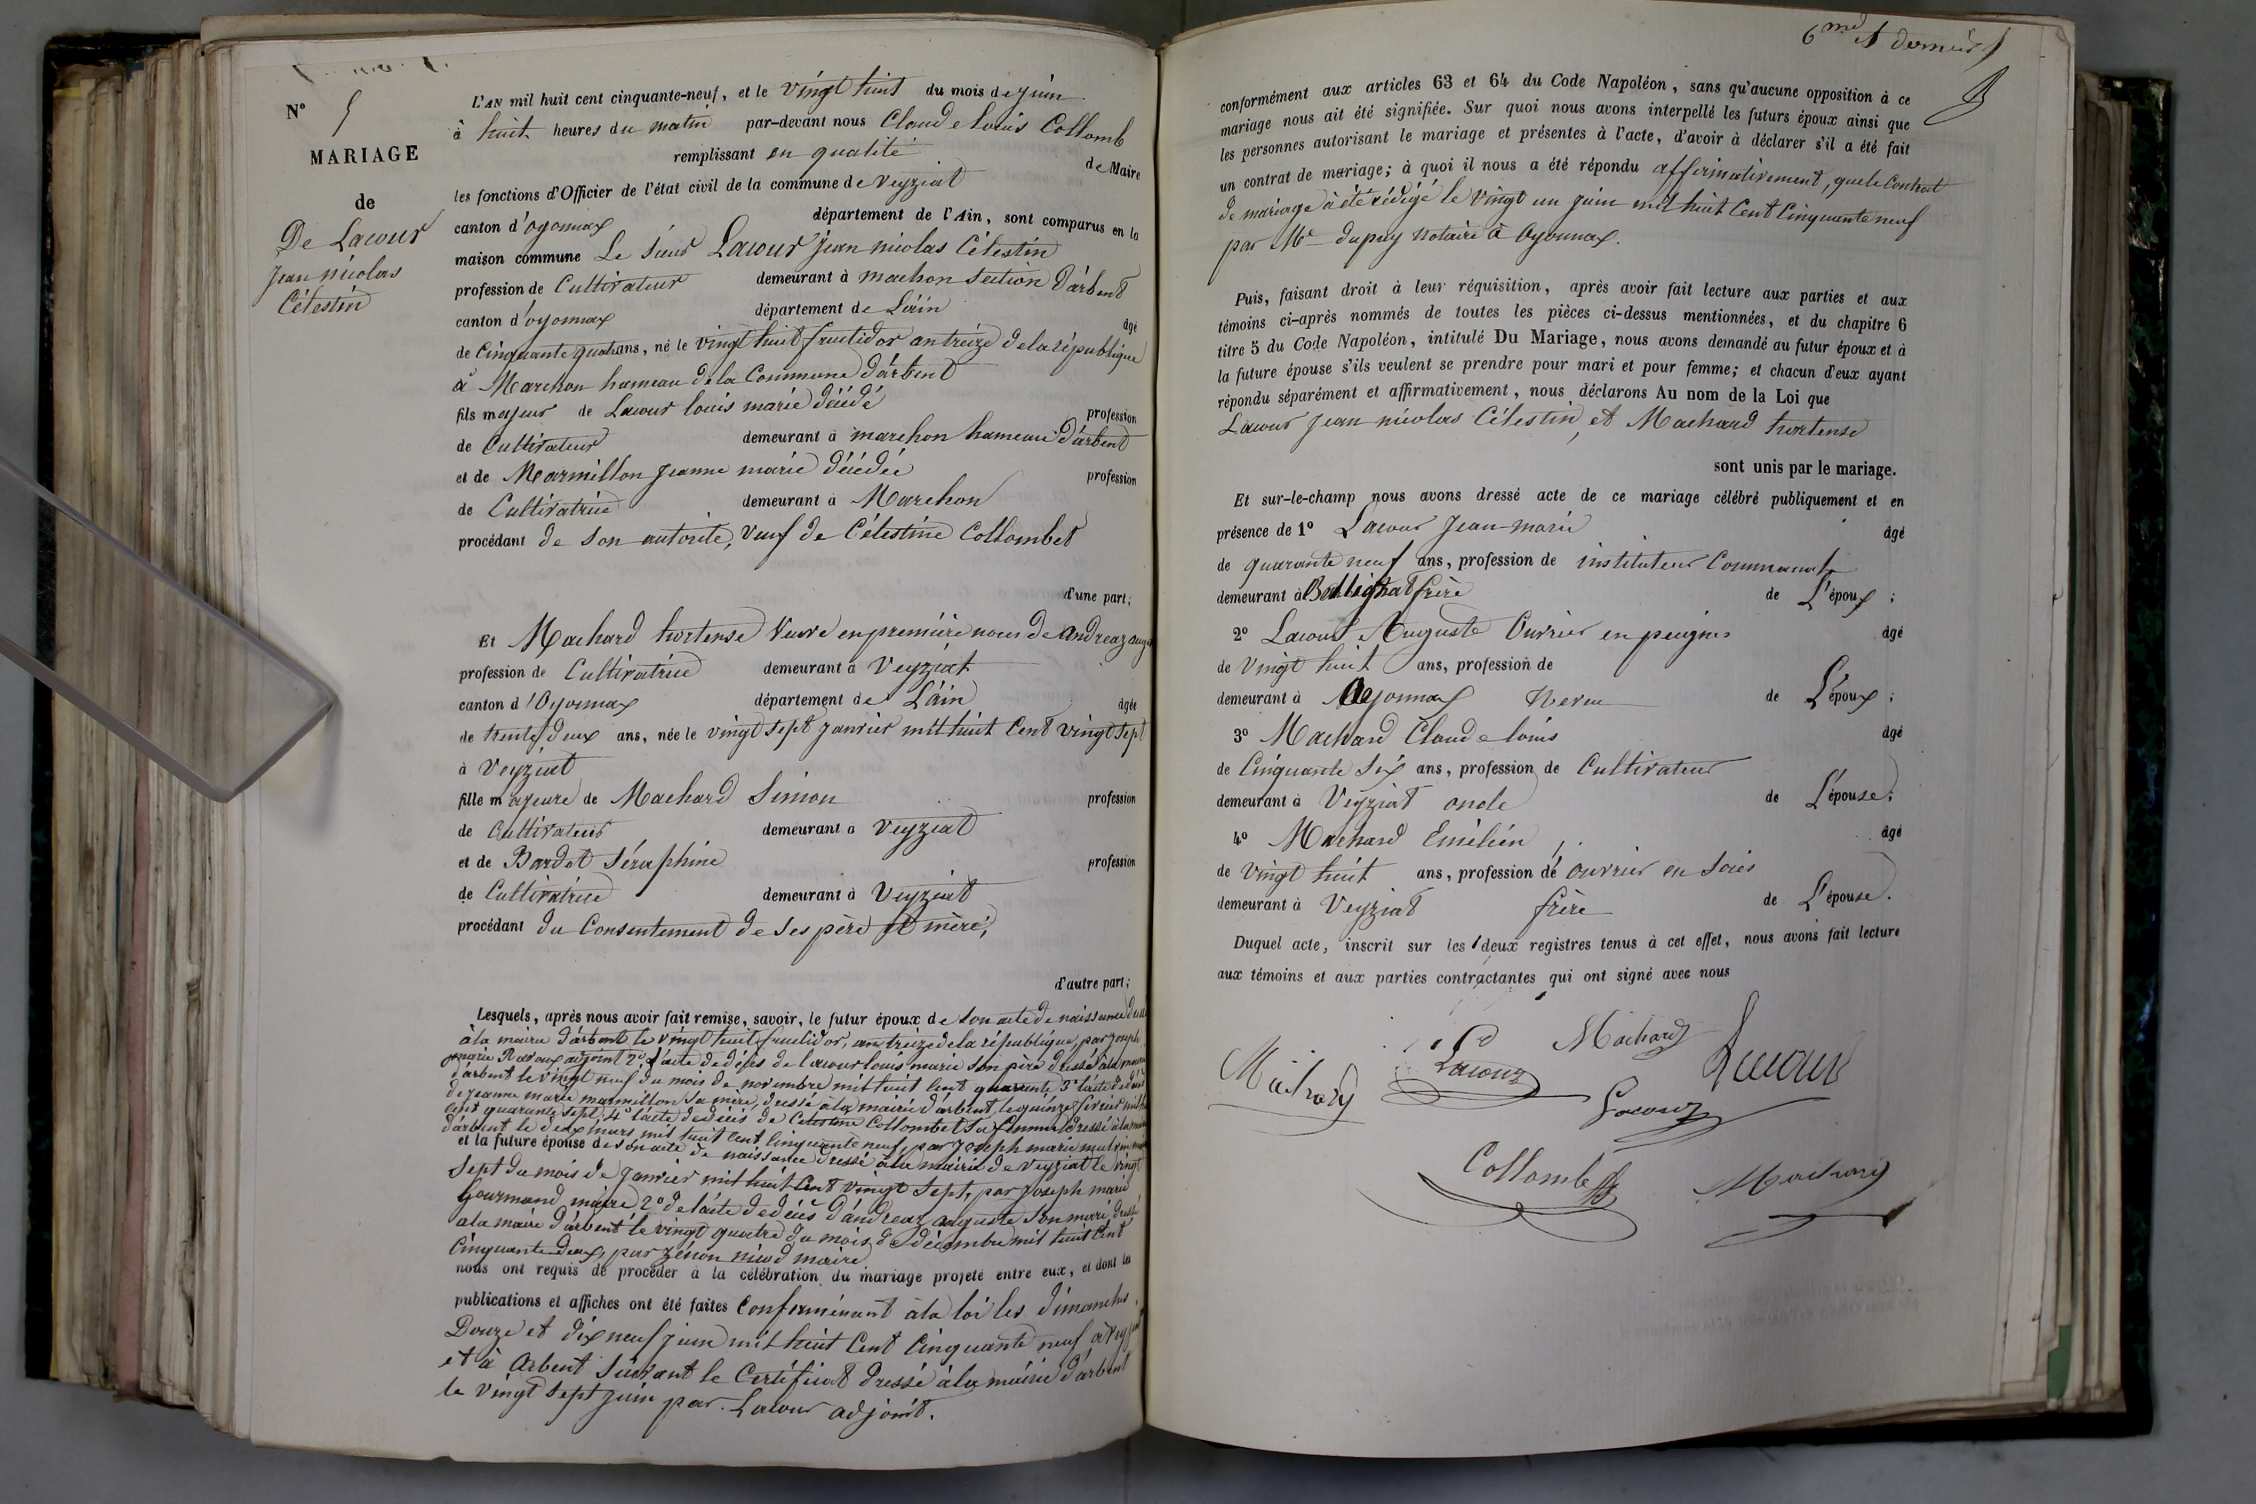 N° 5
MARIAGE
de
De Lacour
Jean nicolas
Célestin
L'AN mil huit cent cinquante-neuf, et le vingt huit du mois de juin
à huit heures du matin par-devant nous Claude louis Collomb
remplissant en qualité de Maire
les fonctions d'Officier de l'état civil de la commune de Veyziat
canton d'oyonnax département de l'Ain, sont comparus en la
maison commune Le sieur Lacour jean nicolas Célestin
profession de Cultivateur demeurant à marchon section d'arbent
canton d'oyonnax département de L'ain âgé
de cinquante quatre ans, né le vingt huit fructidor an treize de la république
à Marchon hameau de la Commune d'arbent
fils majeur de Lacour louis marie décédé profession
de Cultivateur demeurant à marchon hameau d'arbent
et de Marmillon jeanne marie décédée profession
de Cultivatrice demeurant à Marchon
procédant de son autorité, veuf de Célestine Collombet
d'une part;
Et Machard hortense veuve en première noces de andreaz
profession de Cultivatrice demeurant à Veyziat
canton d'Oyonnax département de L'ain âgée
de trente deux ans, née le vingt sept janvier mil huit Cent vingt sept
à Veyziat
fille majeure de Machard Simon profession
de Cultivateur demeurant à Veyziat
et de Bardet Séraphine profession
de Cultivatrice demeurant à Veyziat
procédant du Consentement de ses père et mère,
d'autre part;
Lesquels, après nous avoir fait remise, savoir, le futur époux de son acte de naissance
à la mairie d'arbent le vingt huit fructidor, an treize de la république, par joseph
marie Ravaux adjoint 2° l'acte de décès de lacour louis marie son père dressé à la
d'arbent le vingt neuf du mois de novembre mil huit Cent quarante, 3° l'acte de décès
de jeanne marie marmillon sa mère, dressé à la mairie d'arbent, le quinze fevrier mil
cent quarante sept, 4° l'acte de décès de Célestine Collombet sa femme dressé à la
d'arbent le deux mars mil huit cent cinquante neuf, par joseph marie
et la future épouse de son acte de naissance dressé à la mairie de Veyziat le vingt
Sept du mois de janvier mil huit Cent vingt sept, par joseph marie
Gourmand maire 2° de l'acte de décès d'andreaz auguste son mari, dressé
a la mairie d'arbent le vingt quatre du mois de décembre mil huit Cent
Cinquante deux, par zénon nicod maire
nous ont requis de procéder à la célébration du mariage projeté entre eux, et dont les
publications et affiches ont été faites Conformément à la loi les dimanches,
Douze et dix neuf juin mil huit Cent Cinquante neuf à
et à Arbent suivant le Certificat dressé à la mairie d'arbent
le vingt sept juin par Lacour adjoint.
6me et dernier
conformément aux articles 63 et 64 du Code Napoléon, sans qu'aucune opposition à ce
mariage nous ait été signifiée. Sur quoi nous avons interpellé les futurs époux ainsi que
les personnes autorisant le mariage et présentes à l'acte, d'avoir à déclarer s'il a été fait
un contrat de mariage; à quoi il nous a été répondu affirmativement, que le Contrat
de mariage à été rédigé le Vingt un juin mil huit Cent Cinquante neuf
par Me dupuy notaire à Oyonnax.
Puis, faisant droit à leur réquisition, après avoir fait lecture aux parties et aux
témoins ci-après nommés de toutes les pièces ci-dessus mentionnées, et du chapitre 6
titre 5 du Code Napoléon, intitulé Du Mariage, nous avons demandé au futur époux et à
la future épouse s'ils veulent se prendre pour mari et pour femme; et chacun d'eux ayant
répondu séparément et affirmativement, nous déclarons Au nom de la Loi que
Lacour jean nicolas Célestin, et Machard hortense
sont unis par le mariage.
Et sur-le-champ nous avons dressé acte de ce mariage célébré publiquement et en
présence de 1° Lacour Jean-marie âgé
de quarante neuf ans, profession de instituteur Communal
demeurant à Bellignat frère de L'époux;
2° Lacour Auguste Ouvrier en peignes âgé
de vingt huit ans, profession de
demeurant à Oyonnax neveu de L'époux;
3° Machard Claude louis âgé
de Cinquante Six ans, profession de Cultivateur
demeurant à Veyziat oncle de L'épouse;
4° Machard Emélien, âgé
de vingt huit ans, profession de ouvrier en Soies
demeurant à Veyziat frère de L'épouse.
Duquel acte, inscrit sur les deux registres tenus à cet effet, nous avons fait lecture
aux témoins et aux parties contractantes qui ont signé avec nous
Machard Lacour Machard Lacour
Lacour
Collomb Machard